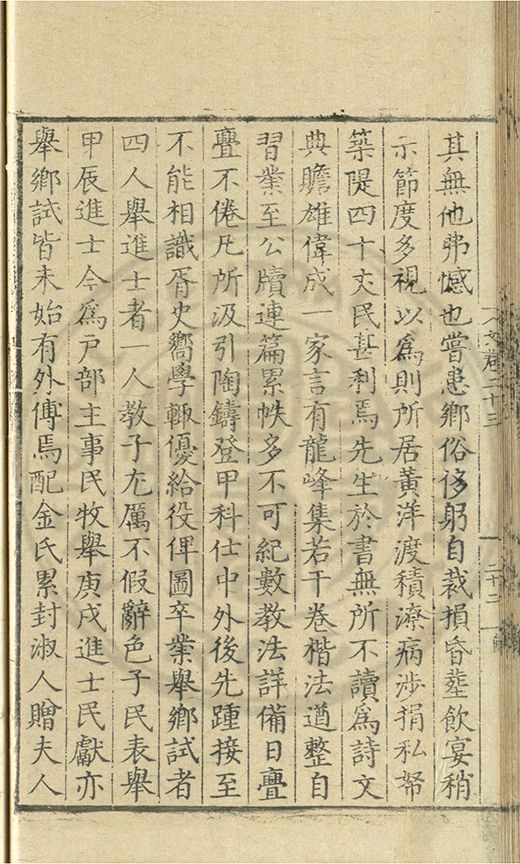 其無他弗憾也嘗患鄉俗侈躬自裁損昏塟飲宴稍
示節度多視以爲則所居黃洋渡積潦病涉捐私帑
築隄四十丈民甚利焉先生於書無所不讀爲詩文
典贍雄偉成一家言有龍峰集若干卷楷法遒整自
習業至公牘連篇累帙多不可紀數教法詳備日亹
亹不倦凡所汲引陶鑄登甲科仕中外後先踵接至
不能相識胥史嚮學輒優給役俾圖卒業舉鄉試者
四人舉進士者一人教子尤厲不假辭色子民表舉
甲辰進士今爲戶部主事民牧舉庚戌進士民獻亦
舉鄉試皆未始有外傅焉配金氏累封淑人贈夫人
卷二十三
二十二